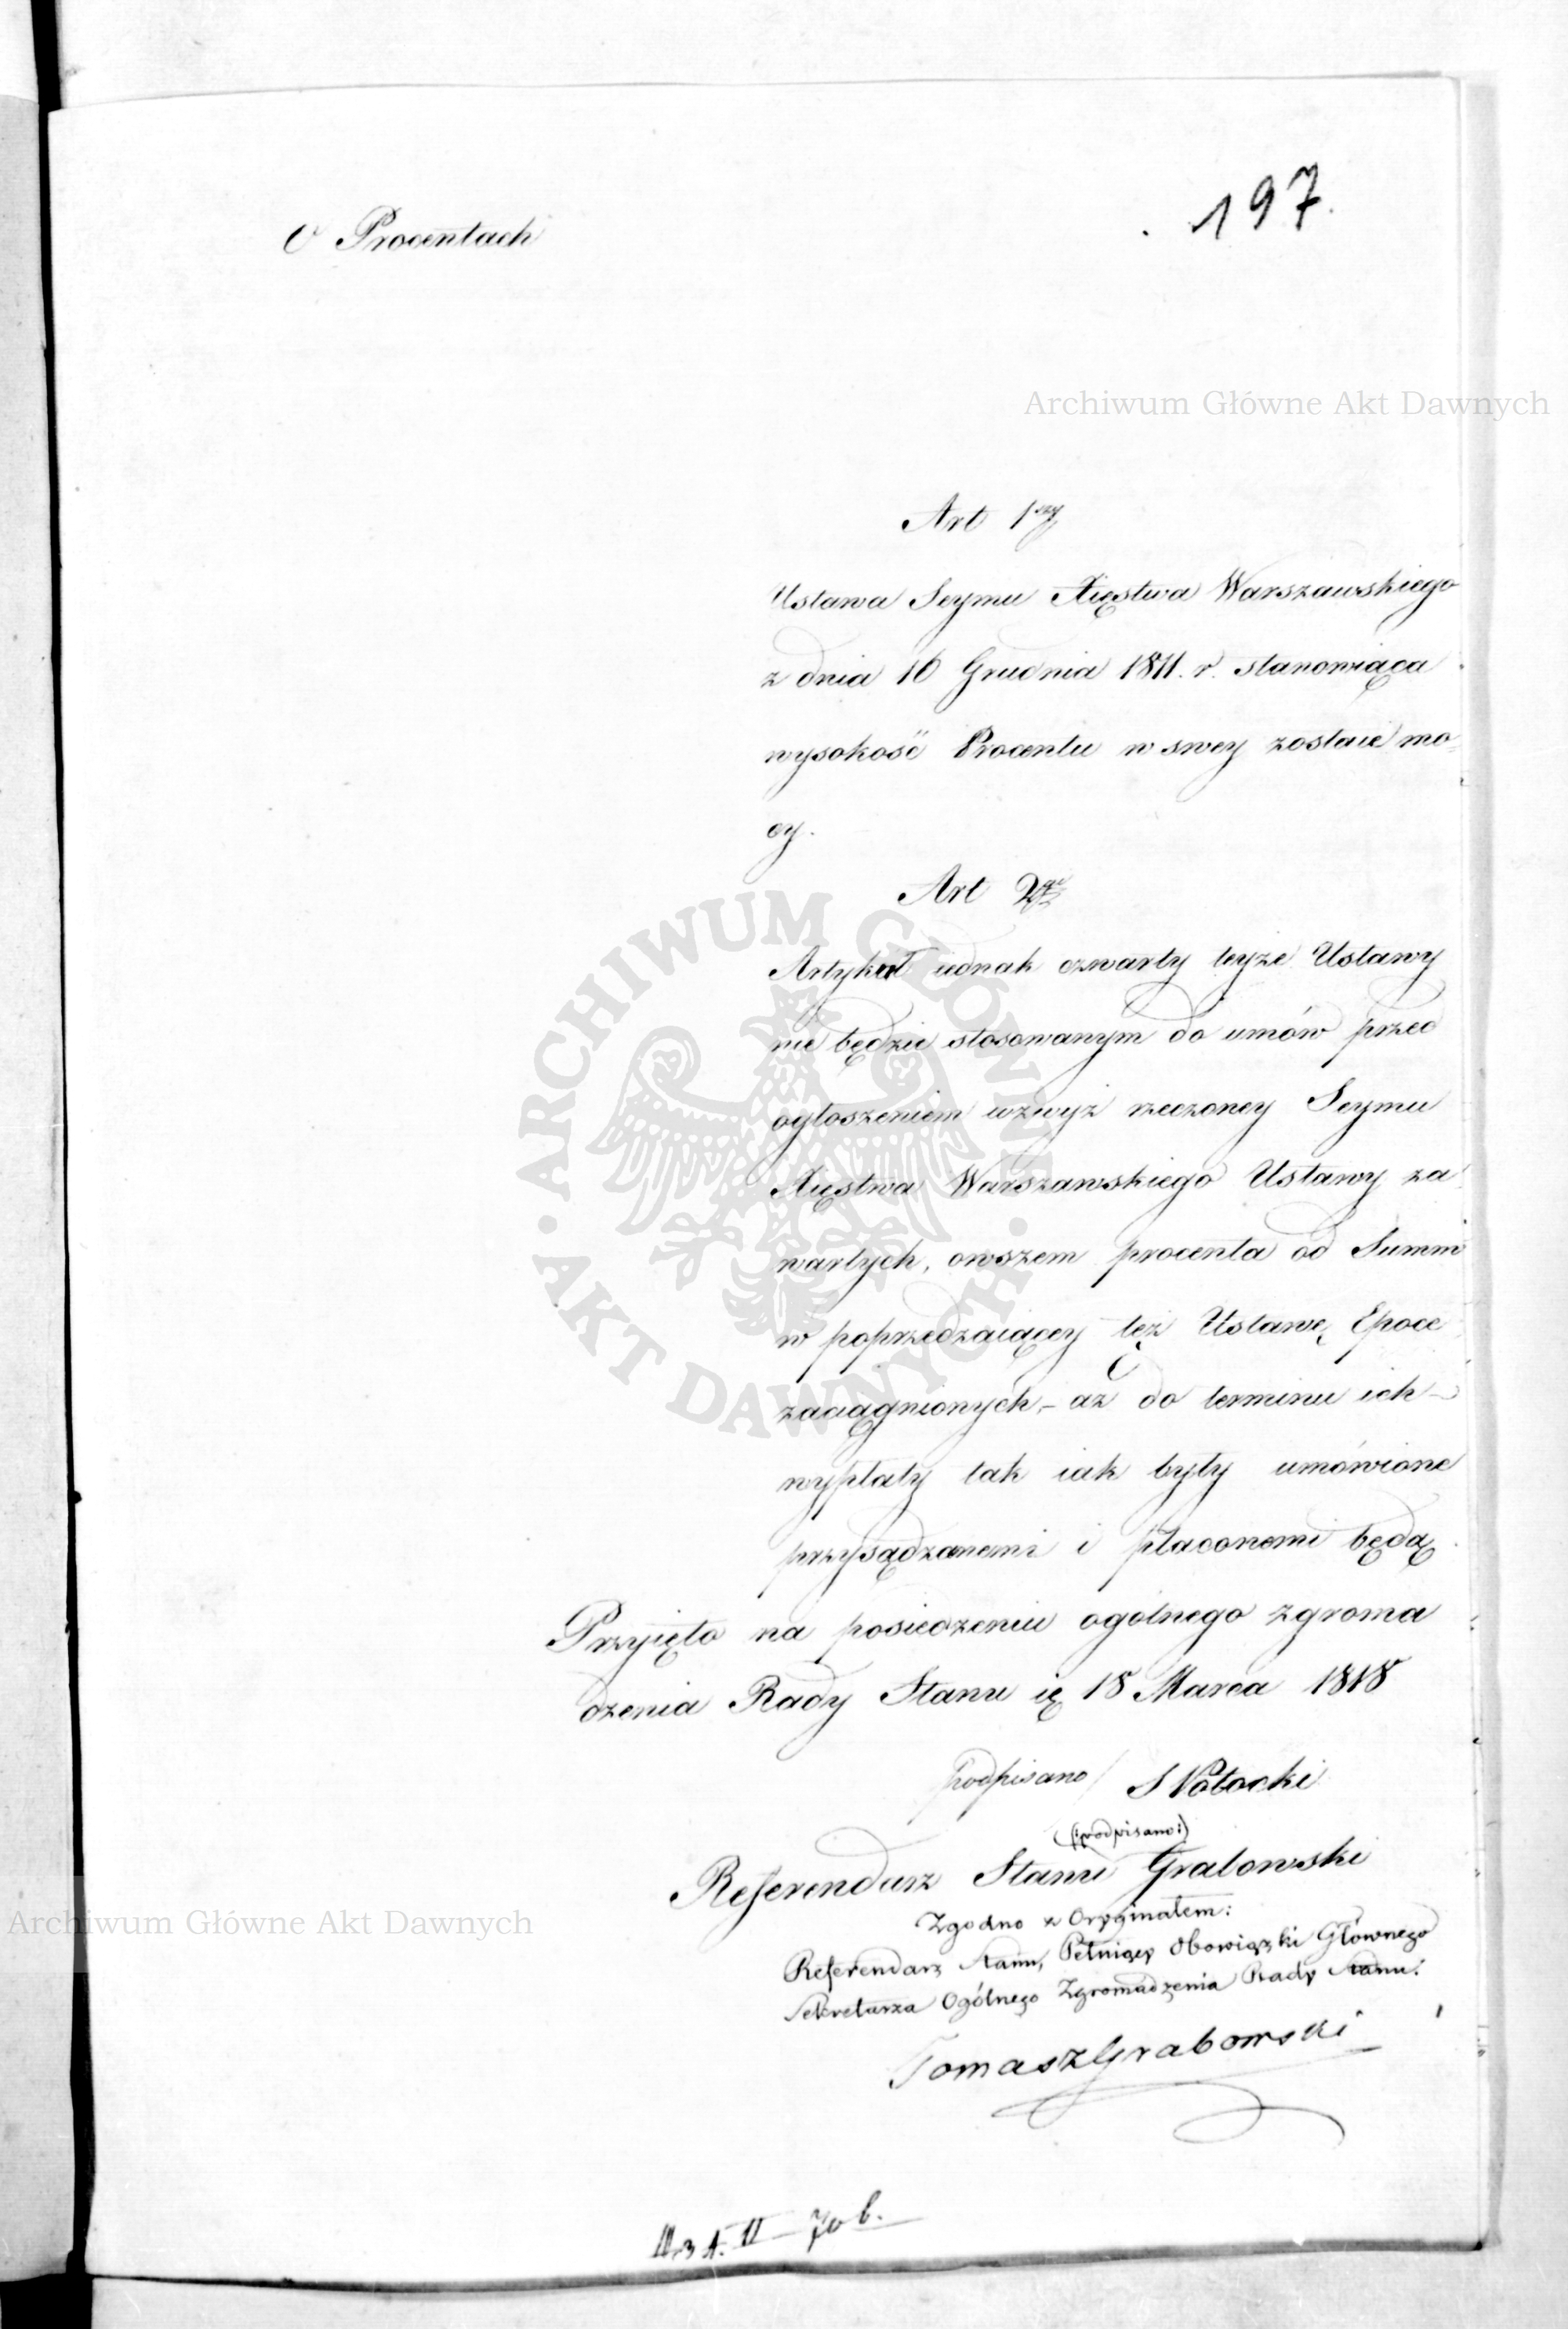 197.
O Procentach
Archiwum Główne Akt Dawnych
Art 1szy
Ustawa Seymu Xięstwa Warszawskiego
z dnia 16 Grudnia 1811. r. stanowiąca
wysokość Procentu w swey zostaie mo
cy.
Art 2gi
Artykuł iednak czwarty teyże Ustawy
nie będzie stosowanym do umów przed
ogłoszeniem wzwyż rzeczoney Seymu
Xięstwa Warszawskiego Ustawy za
wartych, owszem procenta od Summ
w poprzedzaiącey też Ustawę Epoce
zaciągnionych, – aż do terminu ich
wypłaty tak iak były umówione
przysądzanemi i płaconemi będą
Przyięto na posiedzeniu ogólnego zgroma
dzenia Rady Stanu ię 18 Marca 1818
podpisano / S Potocki
(:podpisano:)
Referendarz Stanu Grabowski
Zgodno z Oryginałem:
Archiwum Główne Akt Dawnych
Referendarz Stanu, Pełniący Obowiązki Głównego
Sekretarza Ogólnego Zgromadzenia Rady Stanu:
Tomasz Grabowski
ARCHIWUM GŁÓWNE · AKT DAWNYCH ·